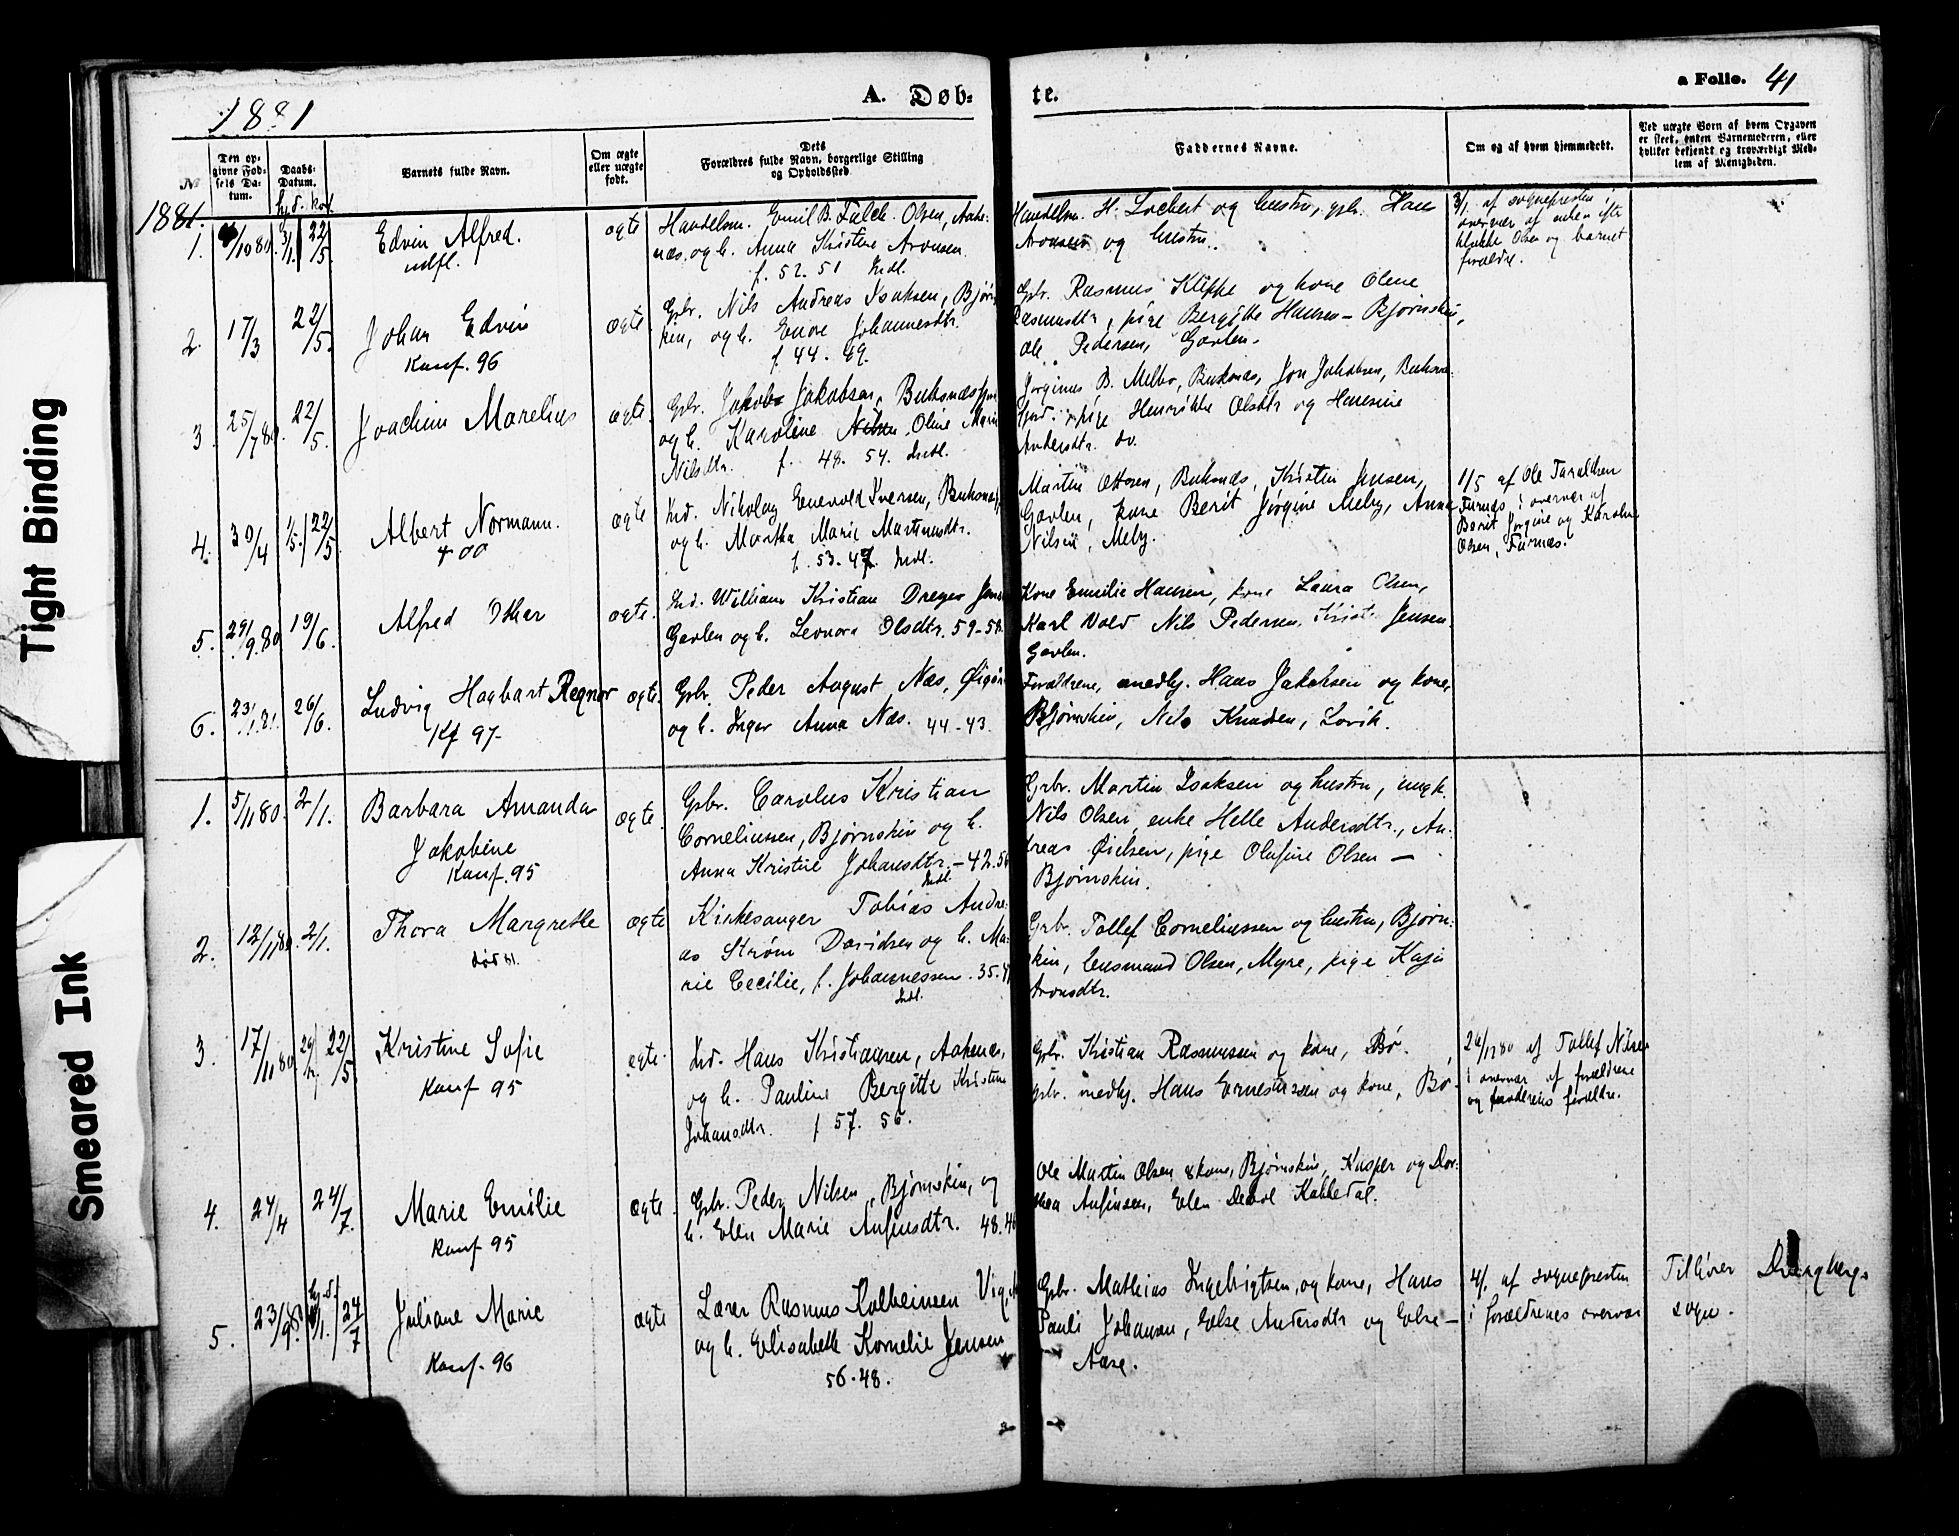 Tight Binding
Smeared Ink
1881
A. Døb-
te.
a Folio. 41
No
Den opgivne Fødsels Datum.
Daabs-Datum.
hj.d. kirk.
Barnets fulde Navn.
Om ægte eller uægte født.
Dets Forældres fulde Navn, borgerlige Stilling og Opholdssted.
Faddernes Navne.
Om og af hvem hjemmedøbt.
Ved uægte Børn af hvem Opgaven er skeet, enten Barnemoderen, eller hvilket bekjendt og troværdigt Medlem af Menigheden.
1881.
1. /10 80. 3/1. 22/5. Edvin Alfred. ægte Handelsm. Emil B. Falck Olsen, Aake-
udfl.
næs, og h. Anna Kristine Aronsen.
f. 52. 51 Indl.
Handelsm. H. Lockert og hustru, gbr. Hans
Aronsen og hustru.
3/1 af sognepresten i
overvær af enken
Olsen og barnets
forældre.
2. 17/3 22/5. Johan Edvin ægte Gbr. Nils Andreas Isaksen, Bjørns-
Konf. 96
kin, og h. Johannesdtr.
f. 44. 49.
Gbr. Rasmus Kleppe og kone Olene
Rasmusdtr, pige Bergitte Hansen - Bjørnskin,
Ole Pedersen, Gavlen.
3. 25/7 80. 22/5. Joachim Marelius ægte. Gbr. Jakob Jakobsen, Buksnæsfjord
og h. Karoline Nilsen Oline Marie
Nilsdtr. f. 48. 54. Indl.
Jørginus B. Melbo, Buksnæs, Jon Jakobsen, Buksnæs-
fjord. pige Henrikke Olsdtr og Hansine
Andersdtr. do.
4. 30/4 1/5. 22/5. Albert Normann. ægte Ind. Nikolay Enevold Iversen, Buksnæsf,
+ 00
og h. Martha Marie Martinusdtr.
f. 53. 47. Indl.
Martin Ottesen, Buksnæs, Kristin Jensen,
Gavlen, kone Berit Jørgine Meby, Anna
Nilsen, Meby.
1/5 af Ole Taraldsen
Furnæs i overvær af
Berit Jørgine og Karoline
Olsen, Furnæs.
5. 29/9.80 19/6. Alfred Othar ægte. Ind. William Kristian Dreyer Jensen
Gavlen og h. Leonora Olsdtr. 59-58.
Kone Emilie Hansen, kone Laura Olsen,
Karl Vold Nils Pedersen, Krist. Jensen
Gavlen.
6. 23/1.81. 26/6. Ludvig Hagbart Regnor ægte. Gbr. Peder August Næs,
Kf 97.
og h. Inger Anna Næs. 44-43.
Forældrene, medhj. Hans Jakobsen og kone,
Bjørnskin, Nils Knudsen, Lovik.
1. 5/11 80. 2/1. Barbara Amanda ægte. Gbr. Carolus Kristian
Jakobine
Konf. 95
Corneliussen, Bjørnskin og h.
Anna Kristine Johansdtr. - 42.56
Indl.
Grbr. Martin Isaksen og hustru, ungk.
Nils Olsen, enke Helle Andersdtr., An-
dreas Øielsen, pige Olufine Olsen -
Bjørnskin.
2. 12/11 80. 2/1. Thora Margrethe ægte Kirkesanger Tobias Andre-
død 81.
as Strøm Davidsen og h. Ma-
rie Cecilie, f. Johannessen. 35.
Indl.
Grbr. Tollef Corneliussen og hustru, Bjørn-
skin, husmand Olsen, Myre, pige Kaja
Aronsdtr.
3. 17/11 80 26/12 22/5. Kristine Sofie ægte. Ind. Hans Kristiansen, Aakenæs,
Konf 95
og h. Pauline Bergitte Kristine
Johansdtr. f 57. 56.
Gbr. Kristian Rasmussen og kone, Bø.
gbr. medhj. Hans Ernestussen og kone, Bø-
26/12 80 af Tollef Nilsen
i overvær af forældrene
og forældre.
4. 24/4 24/7. Marie Emilie ægte. Gbr. Peder Nilsen, Bjørnskin, og
Konf 95
h. Elen Marie Anfinsdtr. 48.46
Ole Martin Olsen & kone, Bjørnskin, Kasper og Dor-
thea Anfinsen, Elen Kobbedal.
5. 23/9 80 hj.d. /1. 24/7 Juliane Marie ægte Lærer Rasmus Kolbeinsen Vig,
Konf. 96
og h. Elisabeth Kornelie Jensen
56. 48.
Gbr. Mathias Ingebrigtsen, og kone, Hans
Pauli Johansen, Else Andersdtr og Else -
Aase.
4/1. af sognepresten
i forældrenes overvær
Tilhører Dverbergs
sogn.